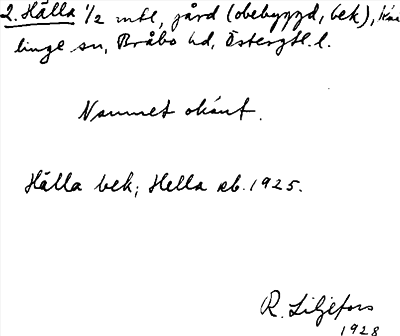 2. Hälla 1/2 mtl, gård (obebyggd, bek), Kvil
linge sn, Bråbo hd, Östergtl. l.
Namnet okänt.
Hälla bek; Hella sb. 1925.
R. Liljefors
1928